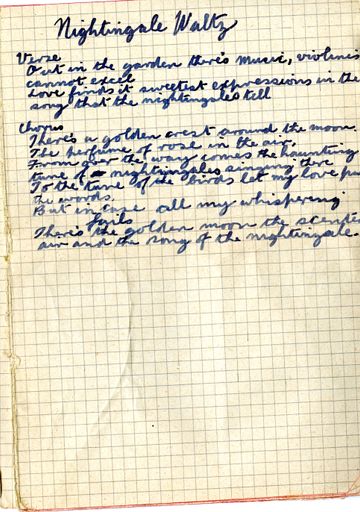 Nightingale Waltz
Verse
Out in the garden there's music, violins
cannot excel
Love finds it sweetest expressions in the
song that the nightingales tell
Chorus
There's a golden crest around the moon.
The perfume of rose in the air.
From over the way comes the haunting
tune of nightingales singing there
To the tune of the birds let my love
the words.
But in case all my whispering
fails
There's the golden moon the scented
air and the song of the nightingale.